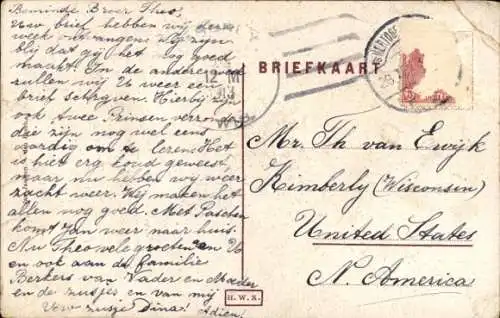 Beminde Broer Theo!
Uw brief hebben wij deze
week ontvangen. Wij zijn
blij dat gij het nog goed
maakt! In de andere
zullen wij U weer een
brief schrijven. Hierbij zijn
ook twee Prinsen
die zijn nog wel eens
aardig om te lezen. Het
is hier erg koud geweest
maar nu hebben wij weer
zacht weer. Wij maken het
allen nog goed. Met Paschen
komt Jan weer naar huis.
Nu Theo vele groeten en
en ook aan de familie
Berkers van Vader en Moeder
en de zusjes en van mij
Uw zusje Dina! Adieu!
BRIEFKAART
Mr. Th van Ewijk
Kimberly (Wisconsin)
United States
N. America
H. W. S.